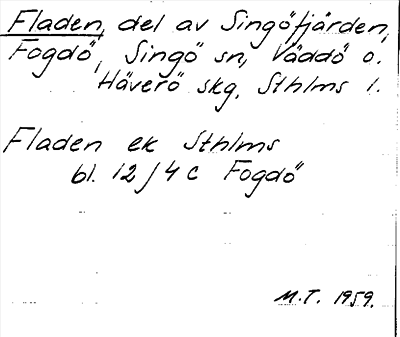 Fladen, del av Singöfjärden,
Fogdö, Singö sn, Väddö o.
Häverö skg, Sthlms l.
Fladen ek Sthlms
bl. 12 J 4 c Fogdö
M.T. 1959.